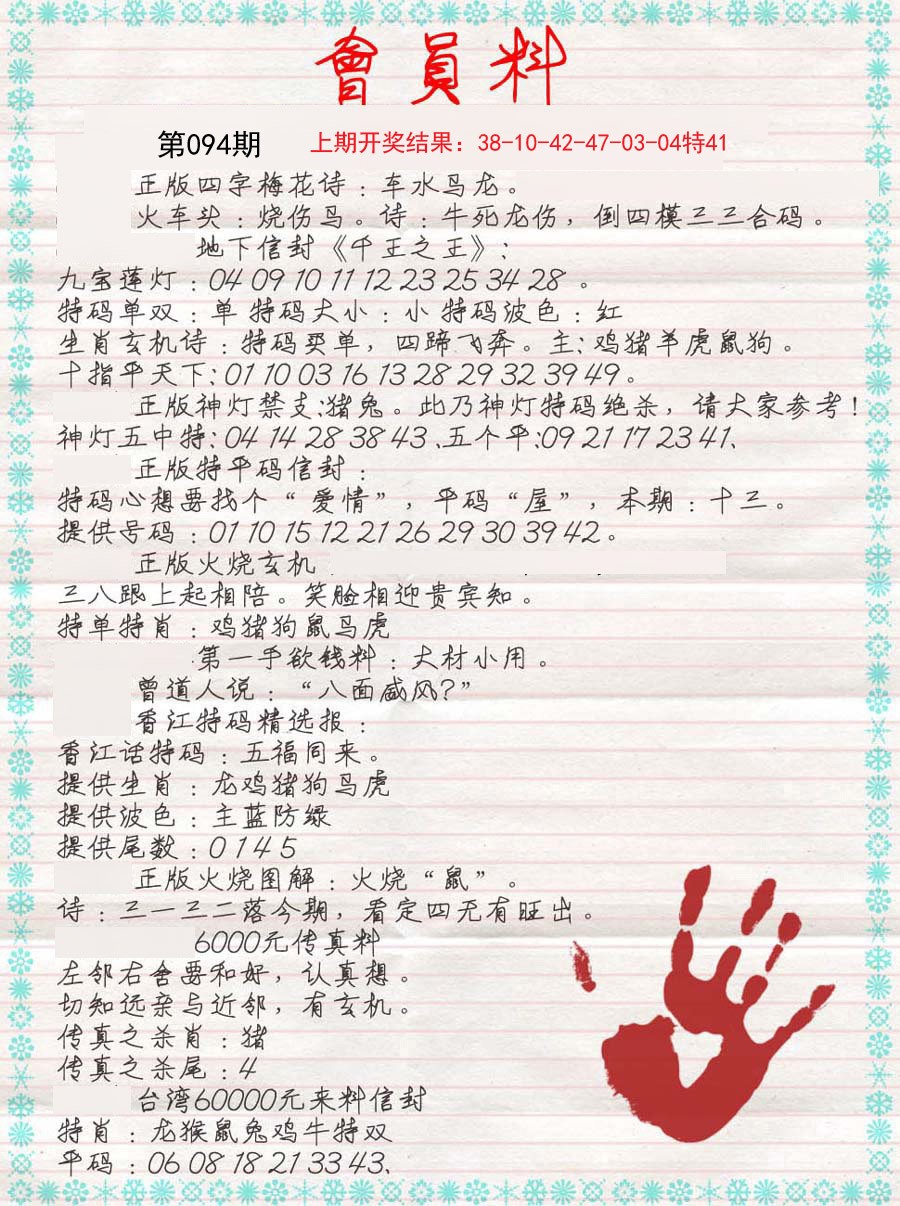 會員料
第094期 上期开奖结果：38-10-42-47-03-04特41
正版四字梅花诗：车水马龙。
火车头：烧伤马。诗：牛死龙伤，倒四模三三合码。
地下信封《千王之王》：
九宝莲灯：04 09 10 11 12 23 25 34 28 。
特码单双：单 特码大小：小 特码波色：红
生肖玄机诗：特码买单，四蹄飞奔。主：鸡猪羊虎鼠狗。
十指平天下：01 10 03 16 13 28 29 32 39 49。
正版神灯禁支：猪兔。此乃神灯特码绝杀，请大家参考！
神灯五中特：04 14 28 38 43、五个平：09 21 17 23 41、
正版特平码信封：
特码心想要找个“爱情”，平码“屋”，本期：十三。
提供号码：01 10 15 12 21 26 29 30 39 42。
正版火烧玄机
三八跟上起相陪。笑脸相迎贵宾知。
特单特肖：鸡猪狗鼠马虎
第一手欲钱料：大材小用。
曾道人说：“八面威风？”
香江特码精选报：
香江话特码：五福同来。
提供生肖：龙鸡猪狗马虎
提供波色：主蓝防绿
提供尾数：0 1 4 5
正版火烧图解：火烧“鼠”。
诗：三一三二落今期，看定四无有旺出。
6000元传真料
左邻右舍要和好，认真想。
切知远亲与近邻，有玄机。
传真之杀肖：猪
传真之杀尾：4
台湾60000元来料信封
特肖：龙猴鼠兔鸡牛特双
平码：06 08 18 21 33 43、